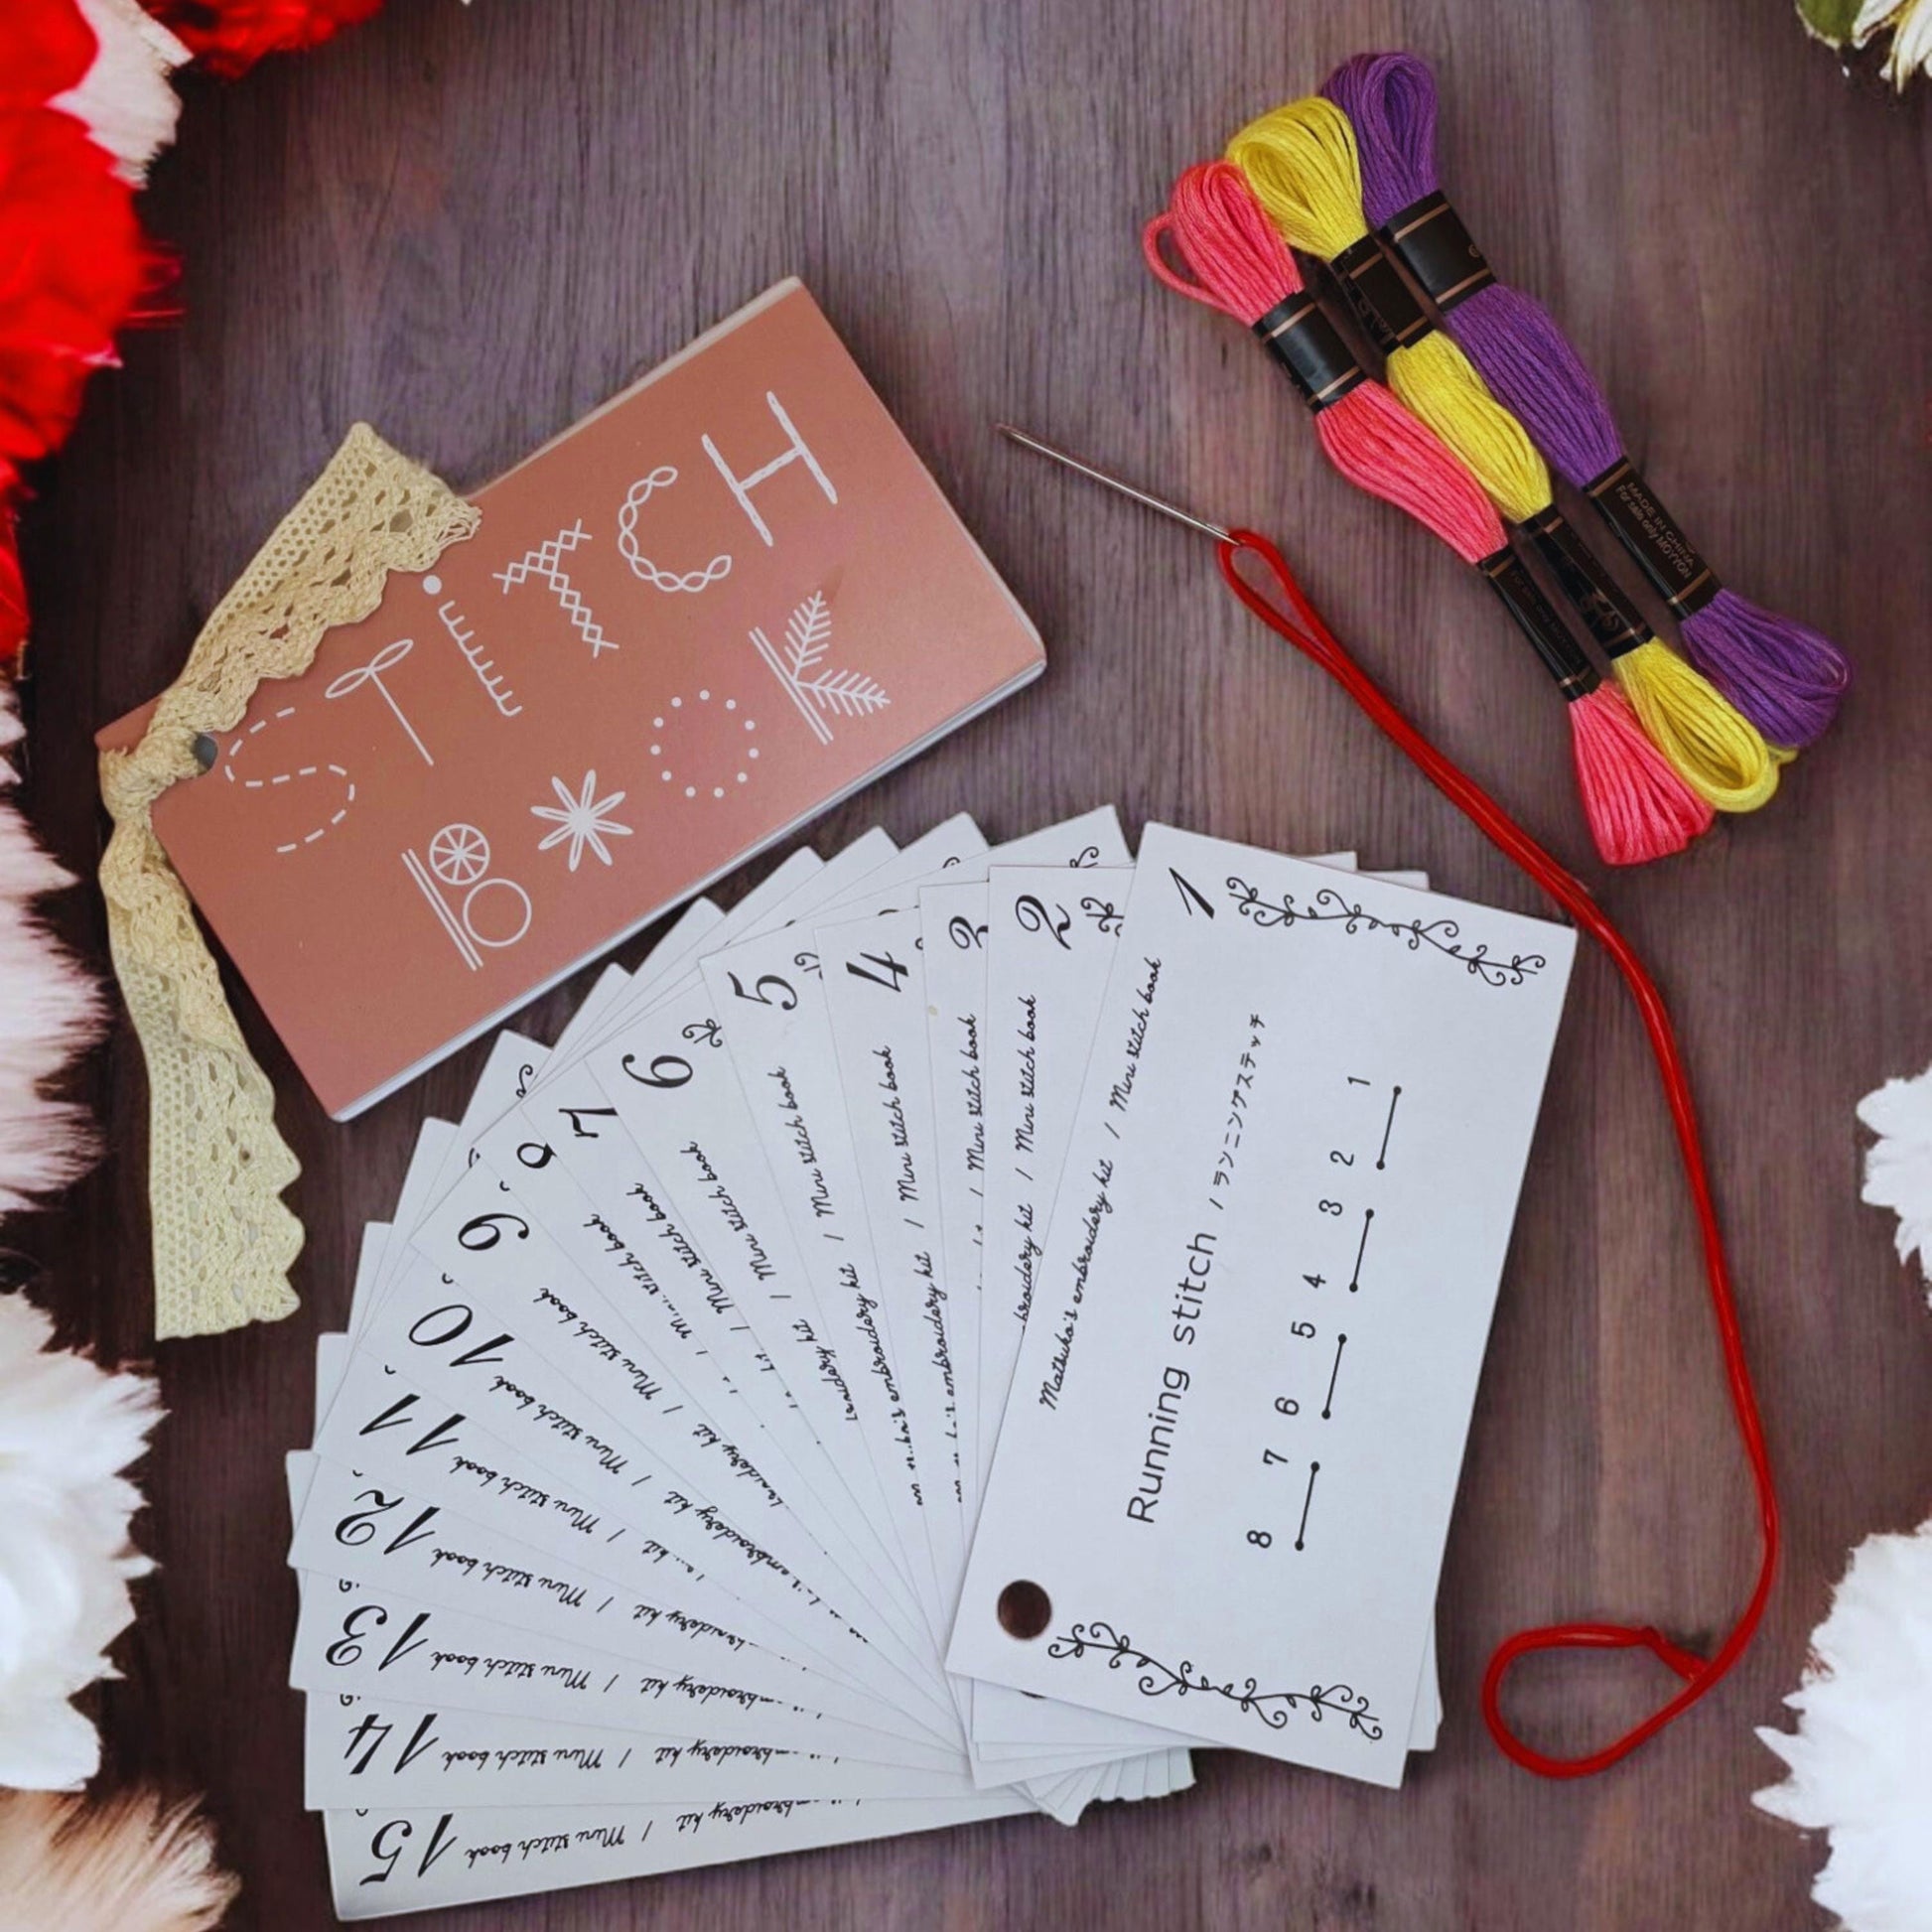 STiTCH
BO*OK
MADE IN CHINA
For sale only MOYYON
1
Matsuko's embroidery kit / Mini stitch book
Running stitch / ランニングステッチ
8 7 6 5 4 3 2 1
2
broidery kit / Mini stitch book
3
/ Mini stitch book
4
embroidery kit / Mini stitch book
5
embroidery kit / Mini stitch book
6
kit / Mini stitch book
7
/ Mini stitch book
8
Mini stitch book
9
/ Mini stitch book
10
embroidery kit / Mini stitch book
11
kit / Mini stitch book
12
broidery kit / Mini stitch book
13
embroidery kit / Mini stitch book
14
mbroidery kit / Mini stitch book
15
embroidery kit / Mini stitch book